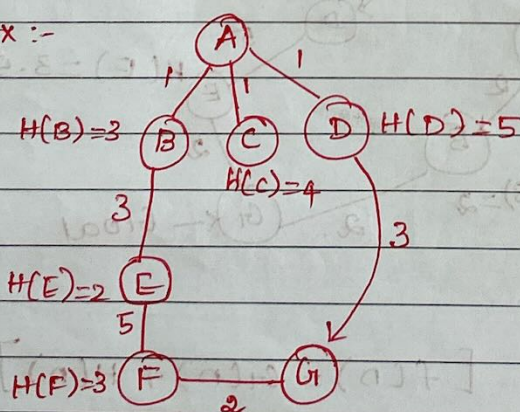 x :-
A
1 1 1
H(B)=3 B C D H(D)=5
H(C)=4
3 3
H(E)=2 E
5
H(F)=3 F G
2